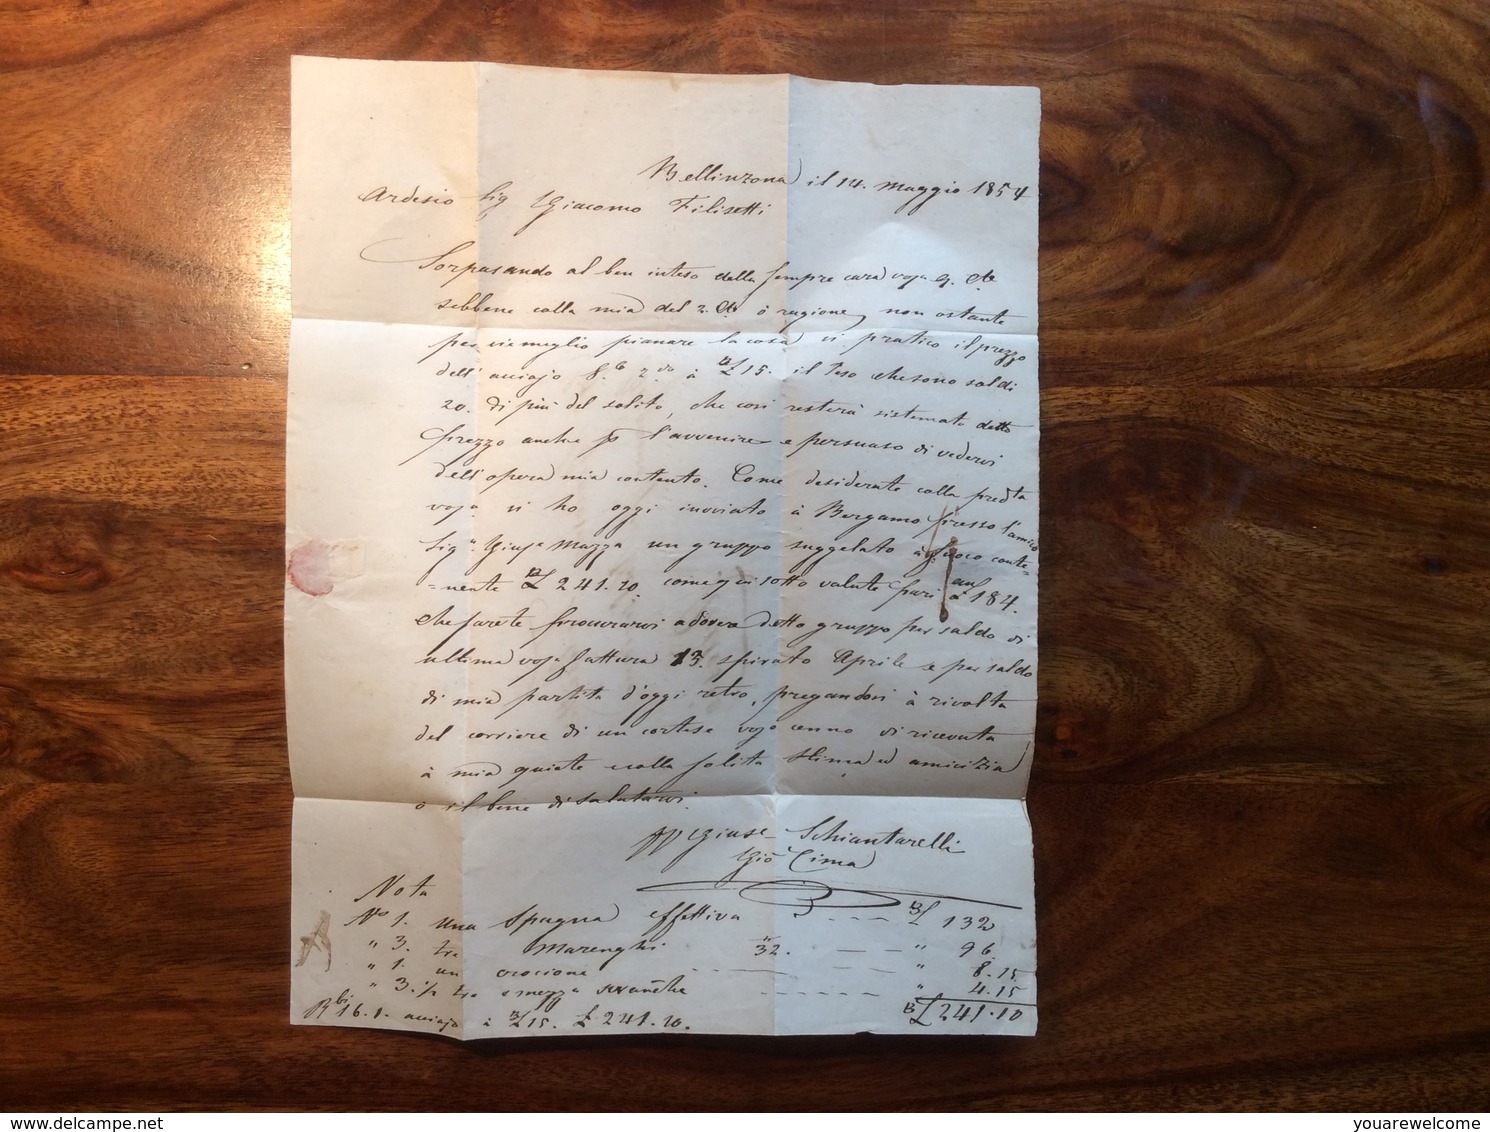 Bellinzona il 14. Maggio 1854
Ardesio Sig Giacomo Filisetti
Sorpasando al ben inteso della sempre cara voja 9. Cte
sebbene colla mia del 2. Cte ò ragione, non ostante
per vie meglio pianare la cosa vi pratico il prezzo
dell'acciajo 8.b 2.do à £ 15. il Teso che sono soldi
20. di più del solito, che così resterà sistemato detto
prezzo anche p l'avvenire e persuaso di vedervi
dell'opera mia contento. Come desiderate colla predta
voja vi ho oggi inviato à Bergamo presso l'amico
Sigr. Giuse Mazza un gruppo suggelato à fuoco conte=
=nente £ 241.10. come qui sotto valute pari al 184.
che farete procurarvi a dover detto gruppo per saldo di
ultima voja fattura 13. spirato Aprile e per saldo
di mia partita d'oggi retro, pregandovi à rivolta
del corriere di un cortese vojo cenno di ricevuta
à mia quiete e colla solita stima ed amicizia
ò il bene di salutarvi.
pp Giuse Schiantarelli
Gio Cima
Nota
No 1. una Spagna effettiva - - - £ 132
" 3. tre Marenghi 32. - - - " 96
" 1. un crocione - - - " 8.15
" 3.½ tre e mezza svanche - - - " 4.15
£ 241.10
Rbi 16.1. acciajo à £ 15. £ 241.10.
www.delcampe.net
youarewelcome